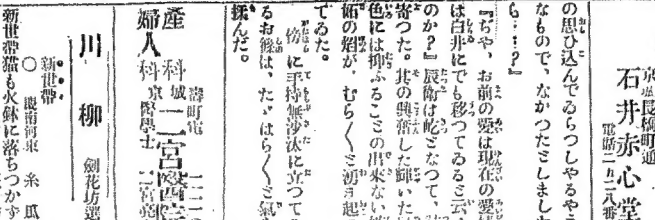 京城長橋町通
石井赤心堂
電話二九二八番
の思ひ込んでゐらつしやるや
なもので、なかつたとしまし
ら‥‥？』
『ぢや、お前の愛は現在の愛
は白井にでも移つてゐると云
のか？』辰衛は屹となつて、
寄つた。其の興奮した輝いた
色には抑ふることの出来ない
妬の焰が、むら〱と湧き起
てゐた。
傍に手持無沙汰に立つて
るお篠は、たゞはら〱と氣
揉んだ。
産科
婦人科
壽町電
京城醫學士
二宮
川柳
劍花坊選
新世帶
○ 慶南河東 糸瓜
新世帶猫も火鉢に落ちつかず